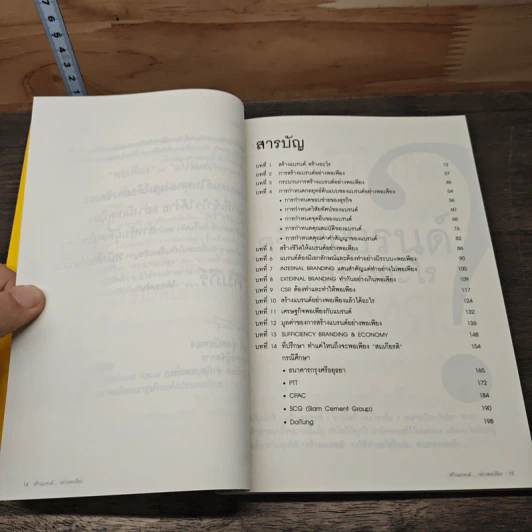 7 6 5 4 3 2 1
สารบัญ
บทที่ 1 สร้างแบรนด์ สร้างอะไร 13
บทที่ 2 การสร้างแบรนด์อย่างพอเพียง 27
บทที่ 3 กระบวนการสร้างแบรนด์อย่างพอเพียง 46
บทที่ 4 การกำหนดกลยุทธ์ต้นแบบของแบรนด์อย่างพอเพียง 54
• การกำหนดขอบข่ายของธุรกิจ 56
• การกำหนดวิสัยทัศน์ของแบรนด์ 60
• การกำหนดจุดยืนของแบรนด์ 68
• การกำหนดคุณสมบัติของแบรนด์ 76
• การกำหนดคุณค่าคำสัญญาของแบรนด์ 82
บทที่ 5 สร้างชีวิตให้แบรนด์อย่างพอเพียง 86
บทที่ 6 แบรนด์ต้องมีเอกลักษณ์และต้องทำอย่างมีระบบ=พอเพียง 90
บทที่ 7 INTERNAL BRANDING แสนสำคัญแต่ทำอย่างไม่พอเพียง 100
บทที่ 8 EXTERNAL BRANDING ทำกันอย่างเกินพอเพียง 109
บทที่ 9 CSR ต้องทำและทำให้พอเพียง 117
บทที่ 10 สร้างแบรนด์อย่างพอเพียงแล้วได้อะไร 124
บทที่ 11 เศรษฐกิจพอเพียงกับแบรนด์ 132
บทที่ 12 มูลค่าของการสร้างแบรนด์อย่างพอเพียง 136
บทที่ 13 SUFFICIENCY BRANDING & ECONOMY 148
บทที่ 14 ที่ปรึกษา ทำแค่ไหนถึงจะพอเพียง "สมเกียรติ" 154
กรณีศึกษา
• ธนาคารกรุงศรีอยุธยา 165
• PTT 172
• CPAC 184
• SCG (Siam Cement Group) 190
• DoiTung 198
14 สร้างแบรนด์... อย่างพอเพียง
สร้างแบรนด์... อย่างพอเพียง 15